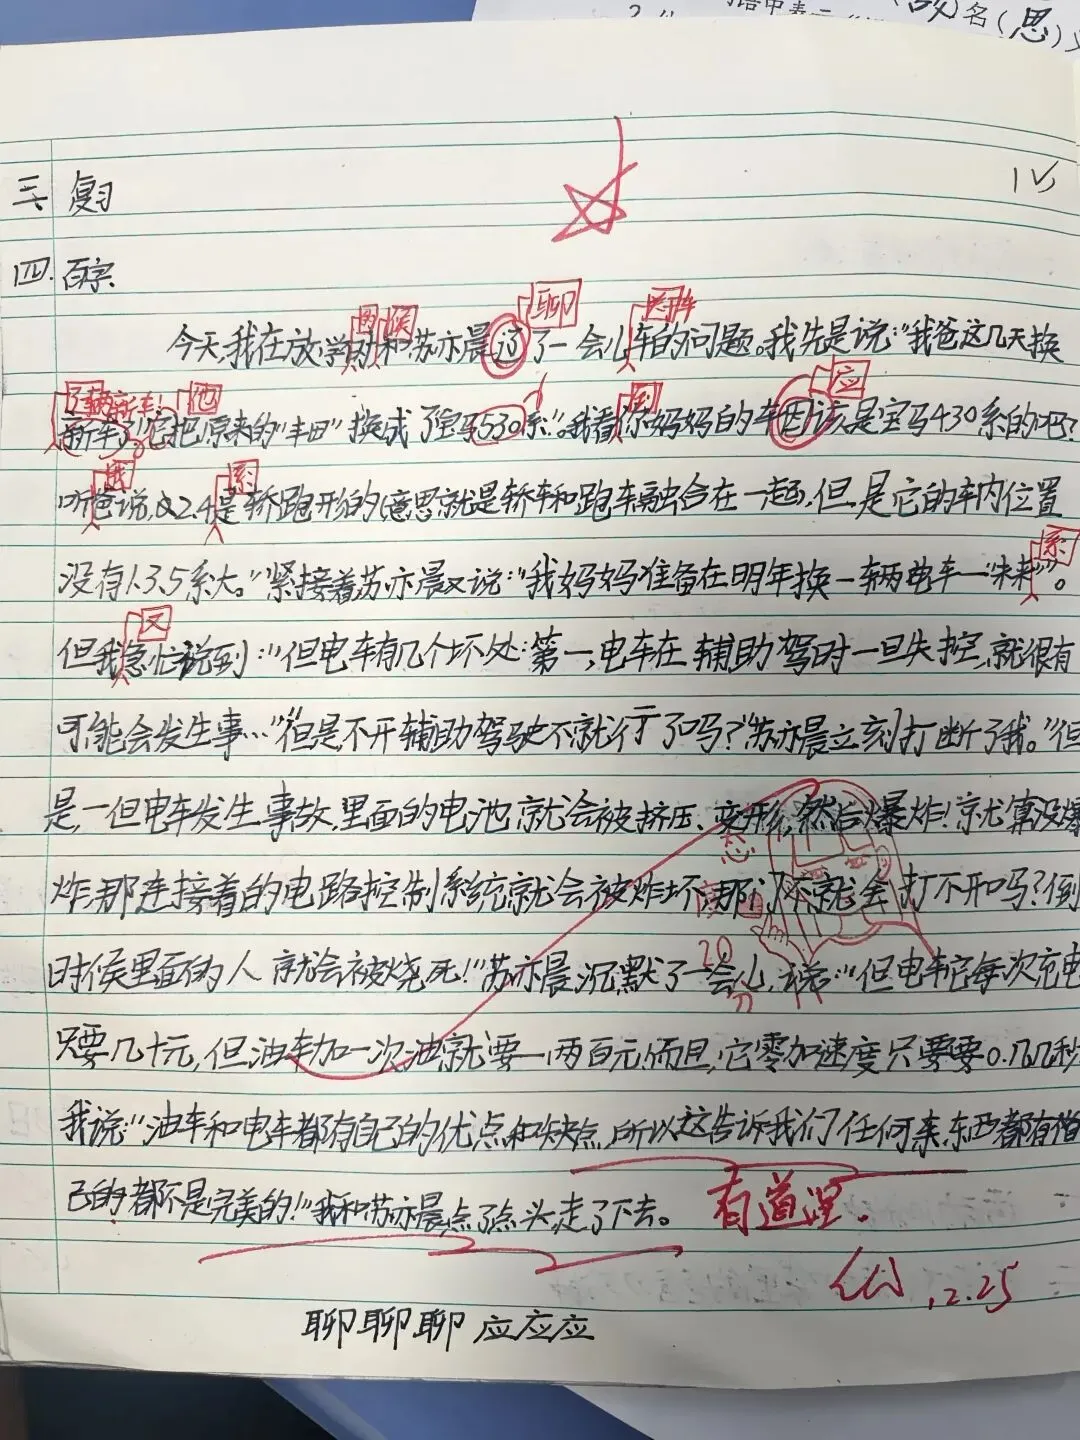 语中表示
名(思)
三、复习
1√
四.百字
的 候 聊 关 于
今天,我在放学时和苏亦晨這了一会儿车的问题。我先是说:“我爸这几天换
了辆新车! 他 到 应
新车了。它把原来的“丰田”换成了宝马530系”。我看你妈妈的车因该是宝马430系的吧?
我 系
听爸说,这2.4是轿跑形的(意思就是轿车和跑车融合在一起),但是它的车内位置
系
没有1.3.5系大。”紧接着苏亦晨又说:“我妈妈准备在明年换一辆电车—“未来”。
又
但我急忙说到:“但电车有几个坏处:第一,电车在辅助驾时一旦失控,就很有
可能会发生事…”“但是,不开辅助驾驶不就行了吗?”苏亦晨立刻打断了我。“但
是,一但电车发生事故,里面的电池就会被挤压、变形,然后爆炸!就算没爆
炸,那连接着的电路控制系统就会被炸坏,那门不就会打不开吗?倒
20
分
时候里面的人就会被烧死!”苏亦晨沉默了一会儿,说:“但电车它每次充电
只要几十元,但油车加一次油就要一两百元,而且,它零加速度只需要0.几几秒
我说:“油车和电车都有自己的优点和缺点,所以这告诉我们任何东西都有自
己的都不是完美的!”我和苏亦晨点了点头,走了下去。
有道理.
2.25
聊聊聊 应应应